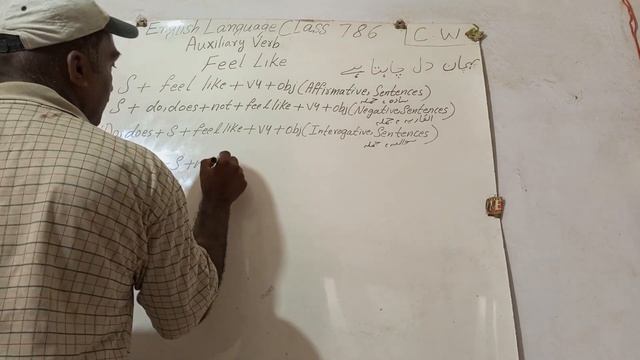 English Language Class 786 C W
Auxiliary Verb
Feel Like
یہاں دل چاہتا ہے
S + feel like + v4 + obj (Affirmative, Sentences)
S + do, does + not + feel like + v4 + obj (Negative, Sentences)
Do, does + S + feel like + v4 + obj (Interogative, Sentences)
S +